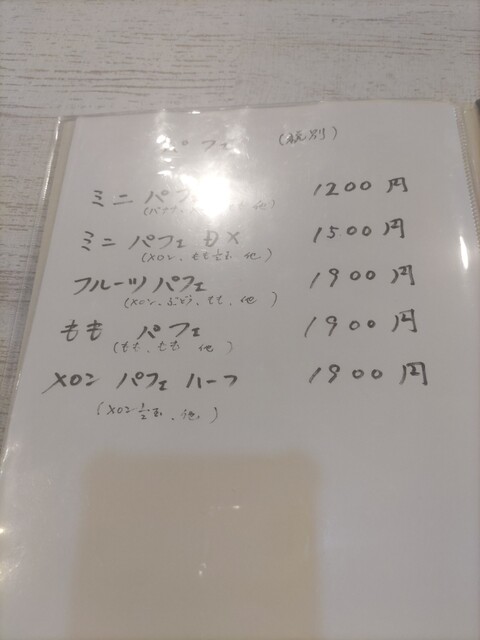 パフェ (税別)
ミニ パフェ 1200円
他)
ミニ パフェ DX 1500円
(メロン、もも 他)
フルーツパフェ 1900円
(メロン、ぶどう、もも、他)
もも パフェ 1900円
(もも、もも 他)
メロン パフェ ハーフ 1900円
(メロン 1/2 、他)